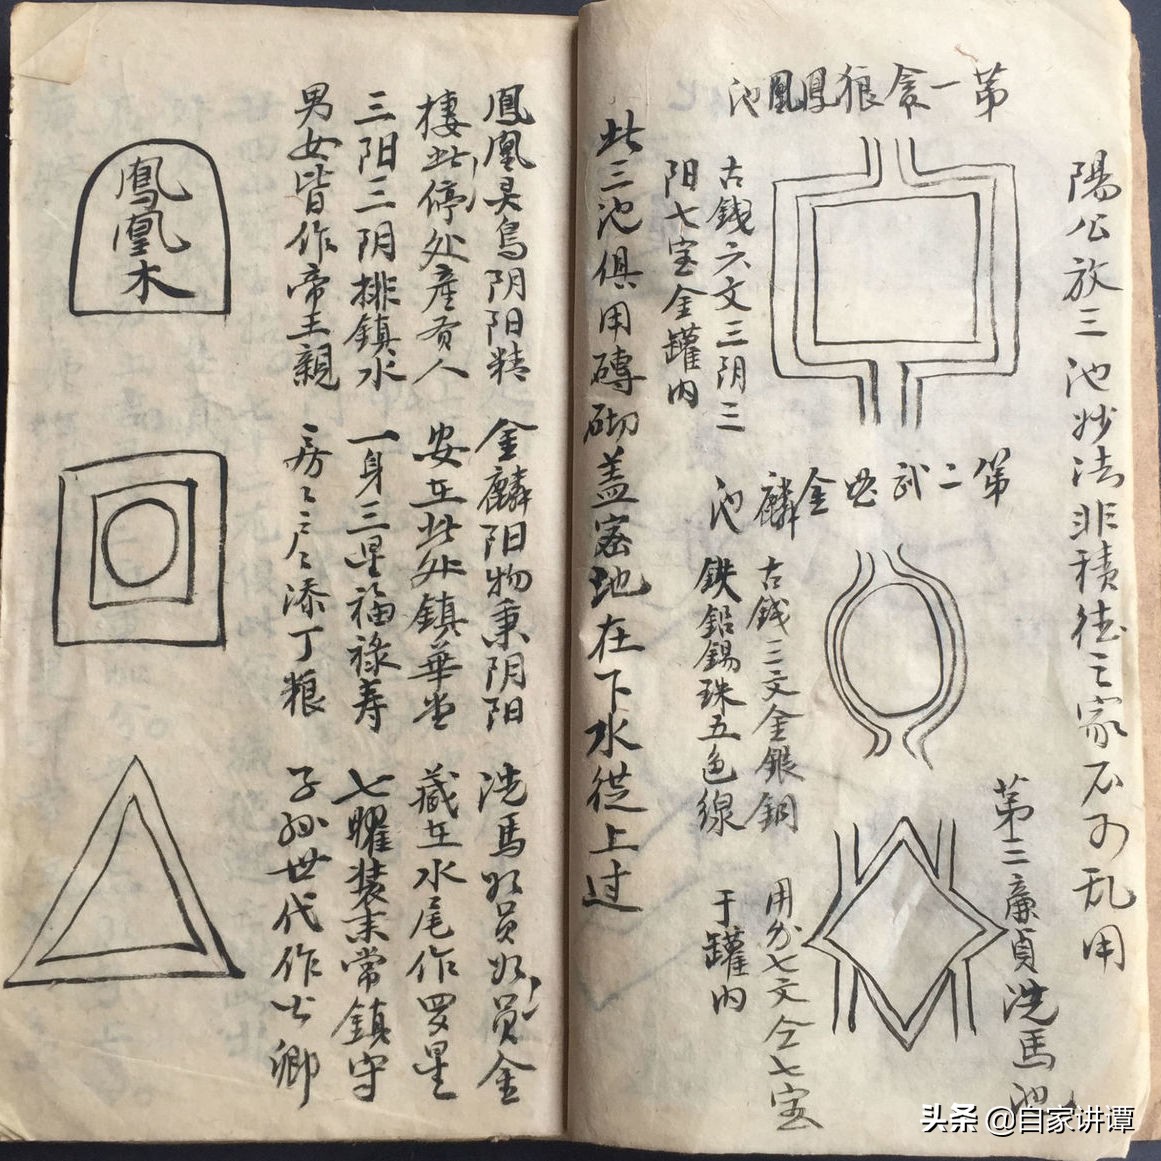 陽公放三池妙法非積德之家不可乱用
第一貪狼鳳凰池
古錢六文三阴三
阳七宝金罐内
第二武曲金麟池
古錢三文金銀銅
鉄鉛錫珠五色線
第三廉貞洗馬池
用分七文仝七宝
于罐内
此三池俱用磚砌盖密地在下水從上过
鳳凰灵鳥阴阳精
棲此停处産贵人
三阳三阴排鎮水
男女皆作帝王親
金麟阳物秉阴阳
安在此处鎮華堂
一身三星福祿寿
房〻户〻添丁粮
洗馬員員金
藏在水尾作罗星
七曜装来常鎮守
子孙世代作公卿
鳳凰木
头条 @自家讲谭